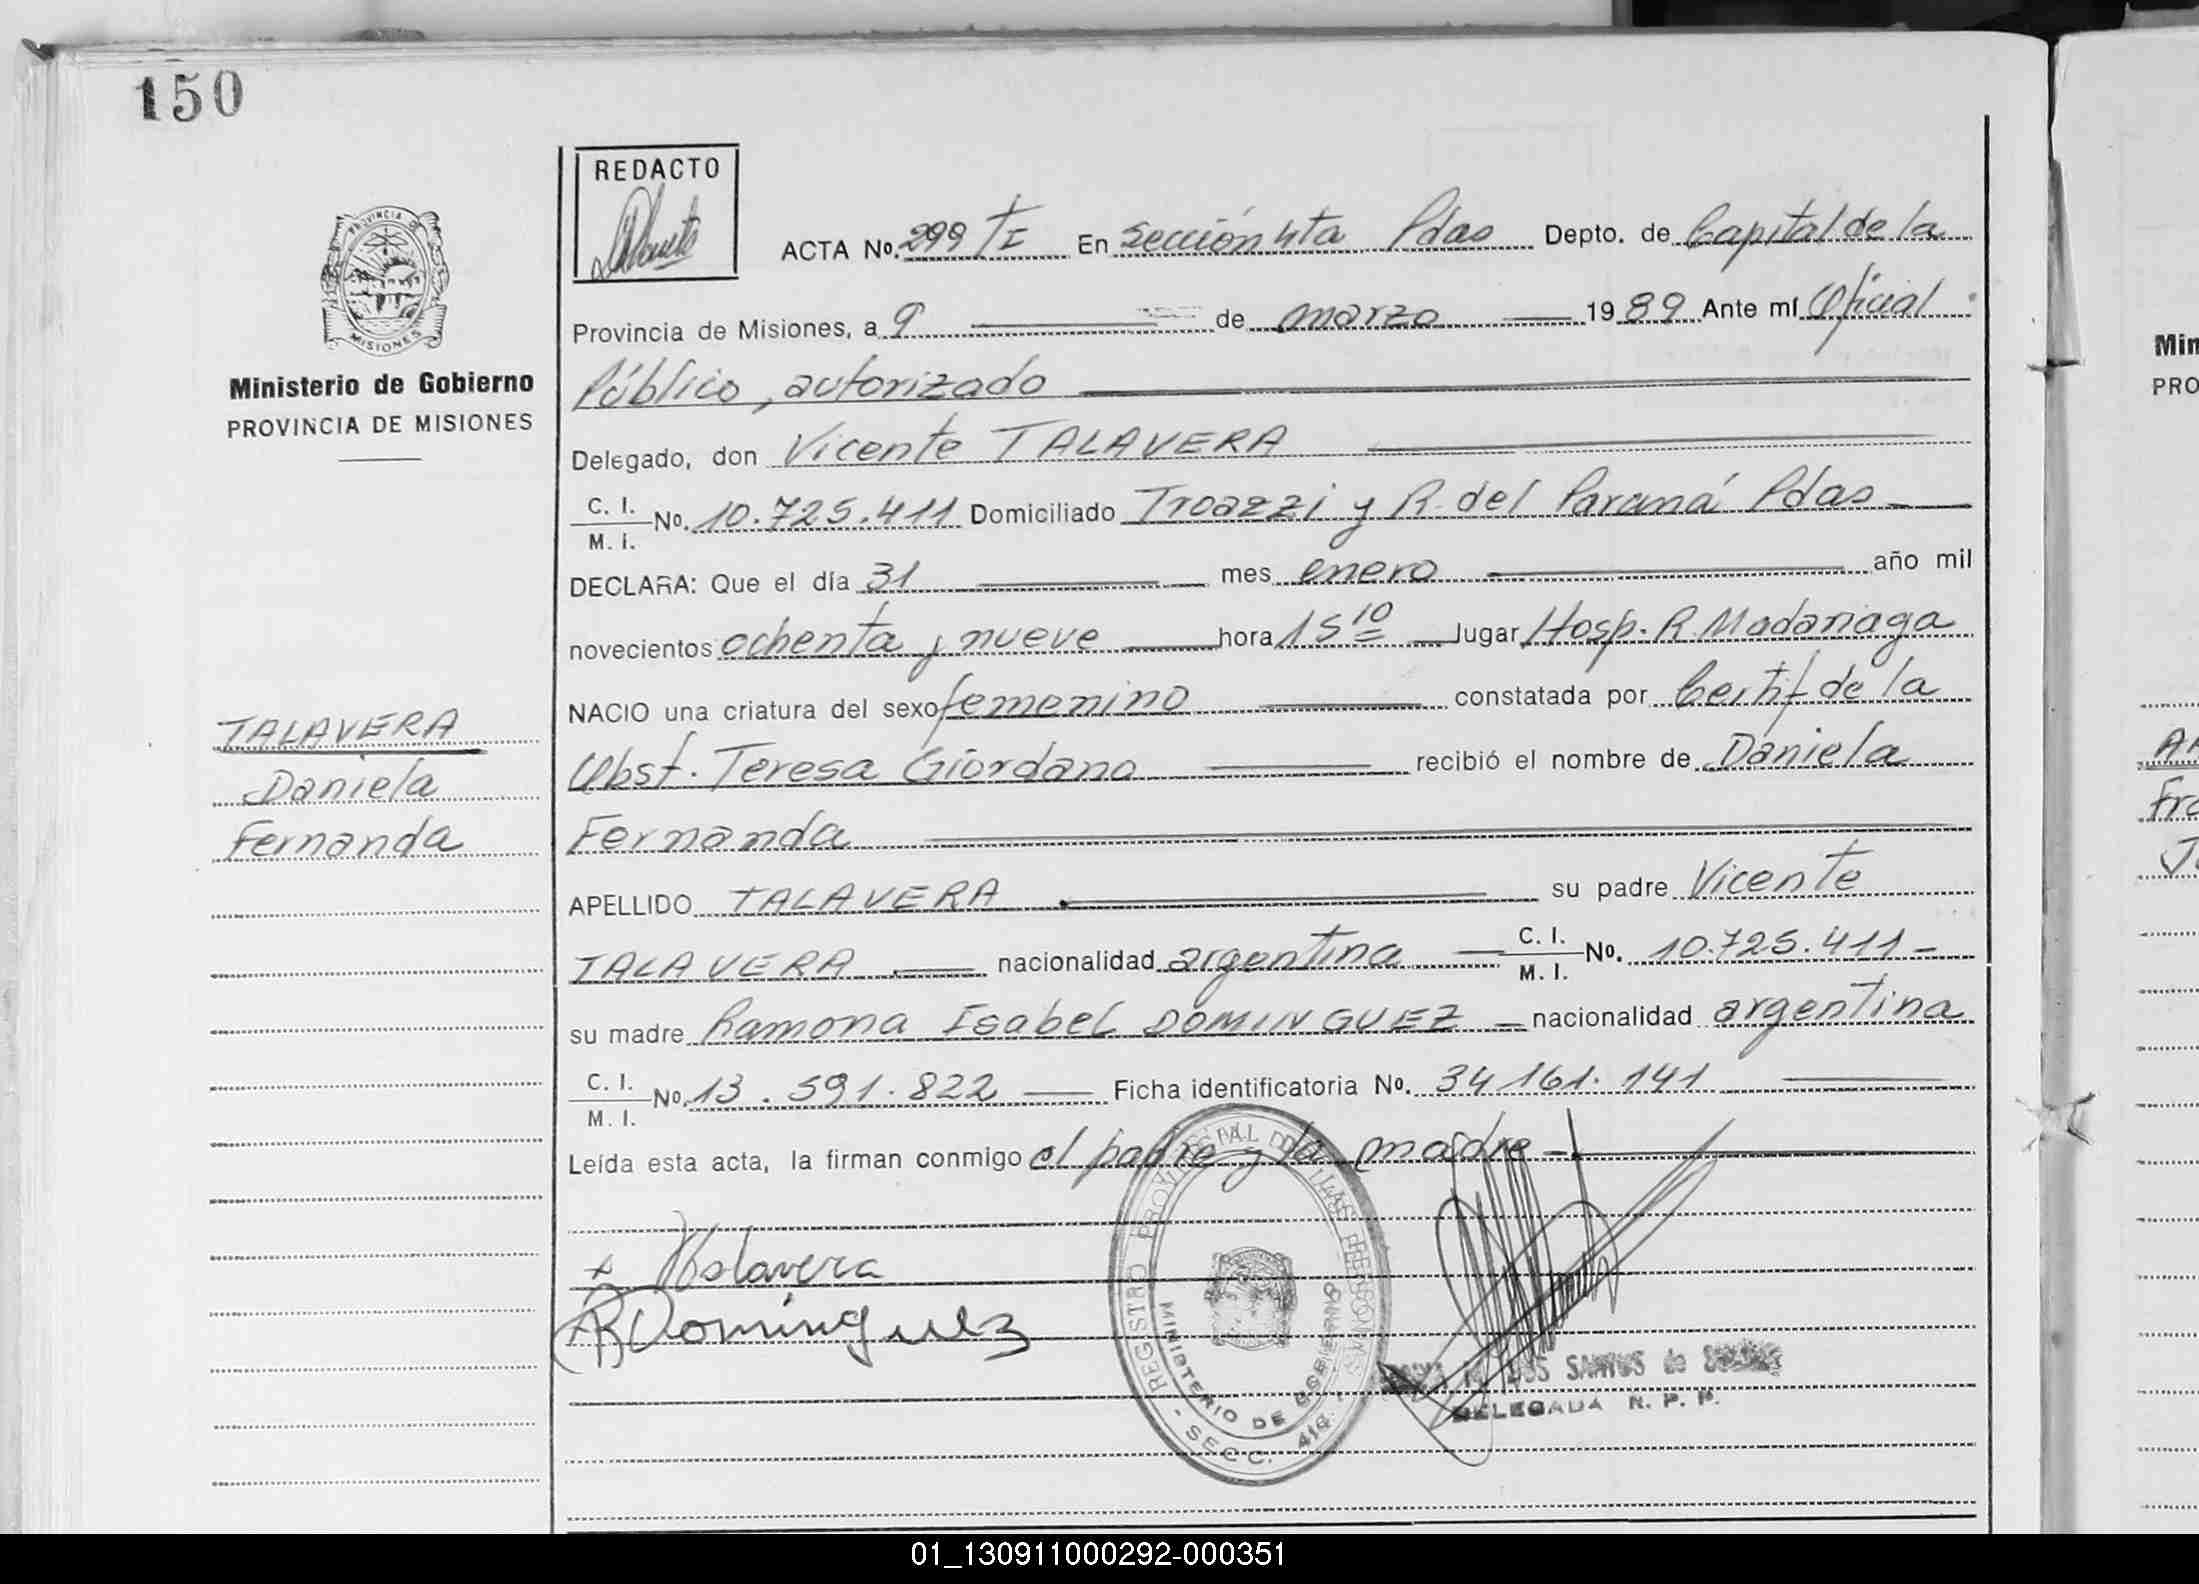 150
REDACTO
PROVINCIA DE
MISIONES
Ministerio de Gobierno
PROVINCIA DE MISIONES
ACTA No. 299 TI En Sección 4ta Pdas Depto. de Capital de la
Provincia de Misiones, a 9 de marzo 1989 Ante mí Oficial
Público, autorizado
Delegado, don Vicente TALAVERA
C. I.
M. I. No. 10.725.411 Domiciliado Troazzi y R. del Paraná Pdas
DECLARA: Que el día 31 mes enero año mil
novecientos ochenta y nueve hora 15 10 lugar Hosp. R. Madariaga
NACIO una criatura del sexo femenino constatada por Certif de la
Obst. Teresa Giordano recibió el nombre de Daniela
Fernanda
APELLIDO TALAVERA su padre Vicente
TALAVERA nacionalidad argentina C. I.
M. I. No. 10.725.411-
su madre Ramona Isabel DOMINGUEZ nacionalidad argentina
C. I.
M. I. No. 13.591.822 Ficha identificatoria No. 34.161.141
Leída esta acta, la firman conmigo el padre y la madre
TALAVERA
Daniela
Fernanda
Talavera
R Dominguez
REGISTRO PROVINCIAL DE LAS PERSONAS
MINISTERIO DE GOBIERNO
SECC.
DOS SANTOS de
DELEGADA R. P. P.
Min
PRO
01_130911000292-000351